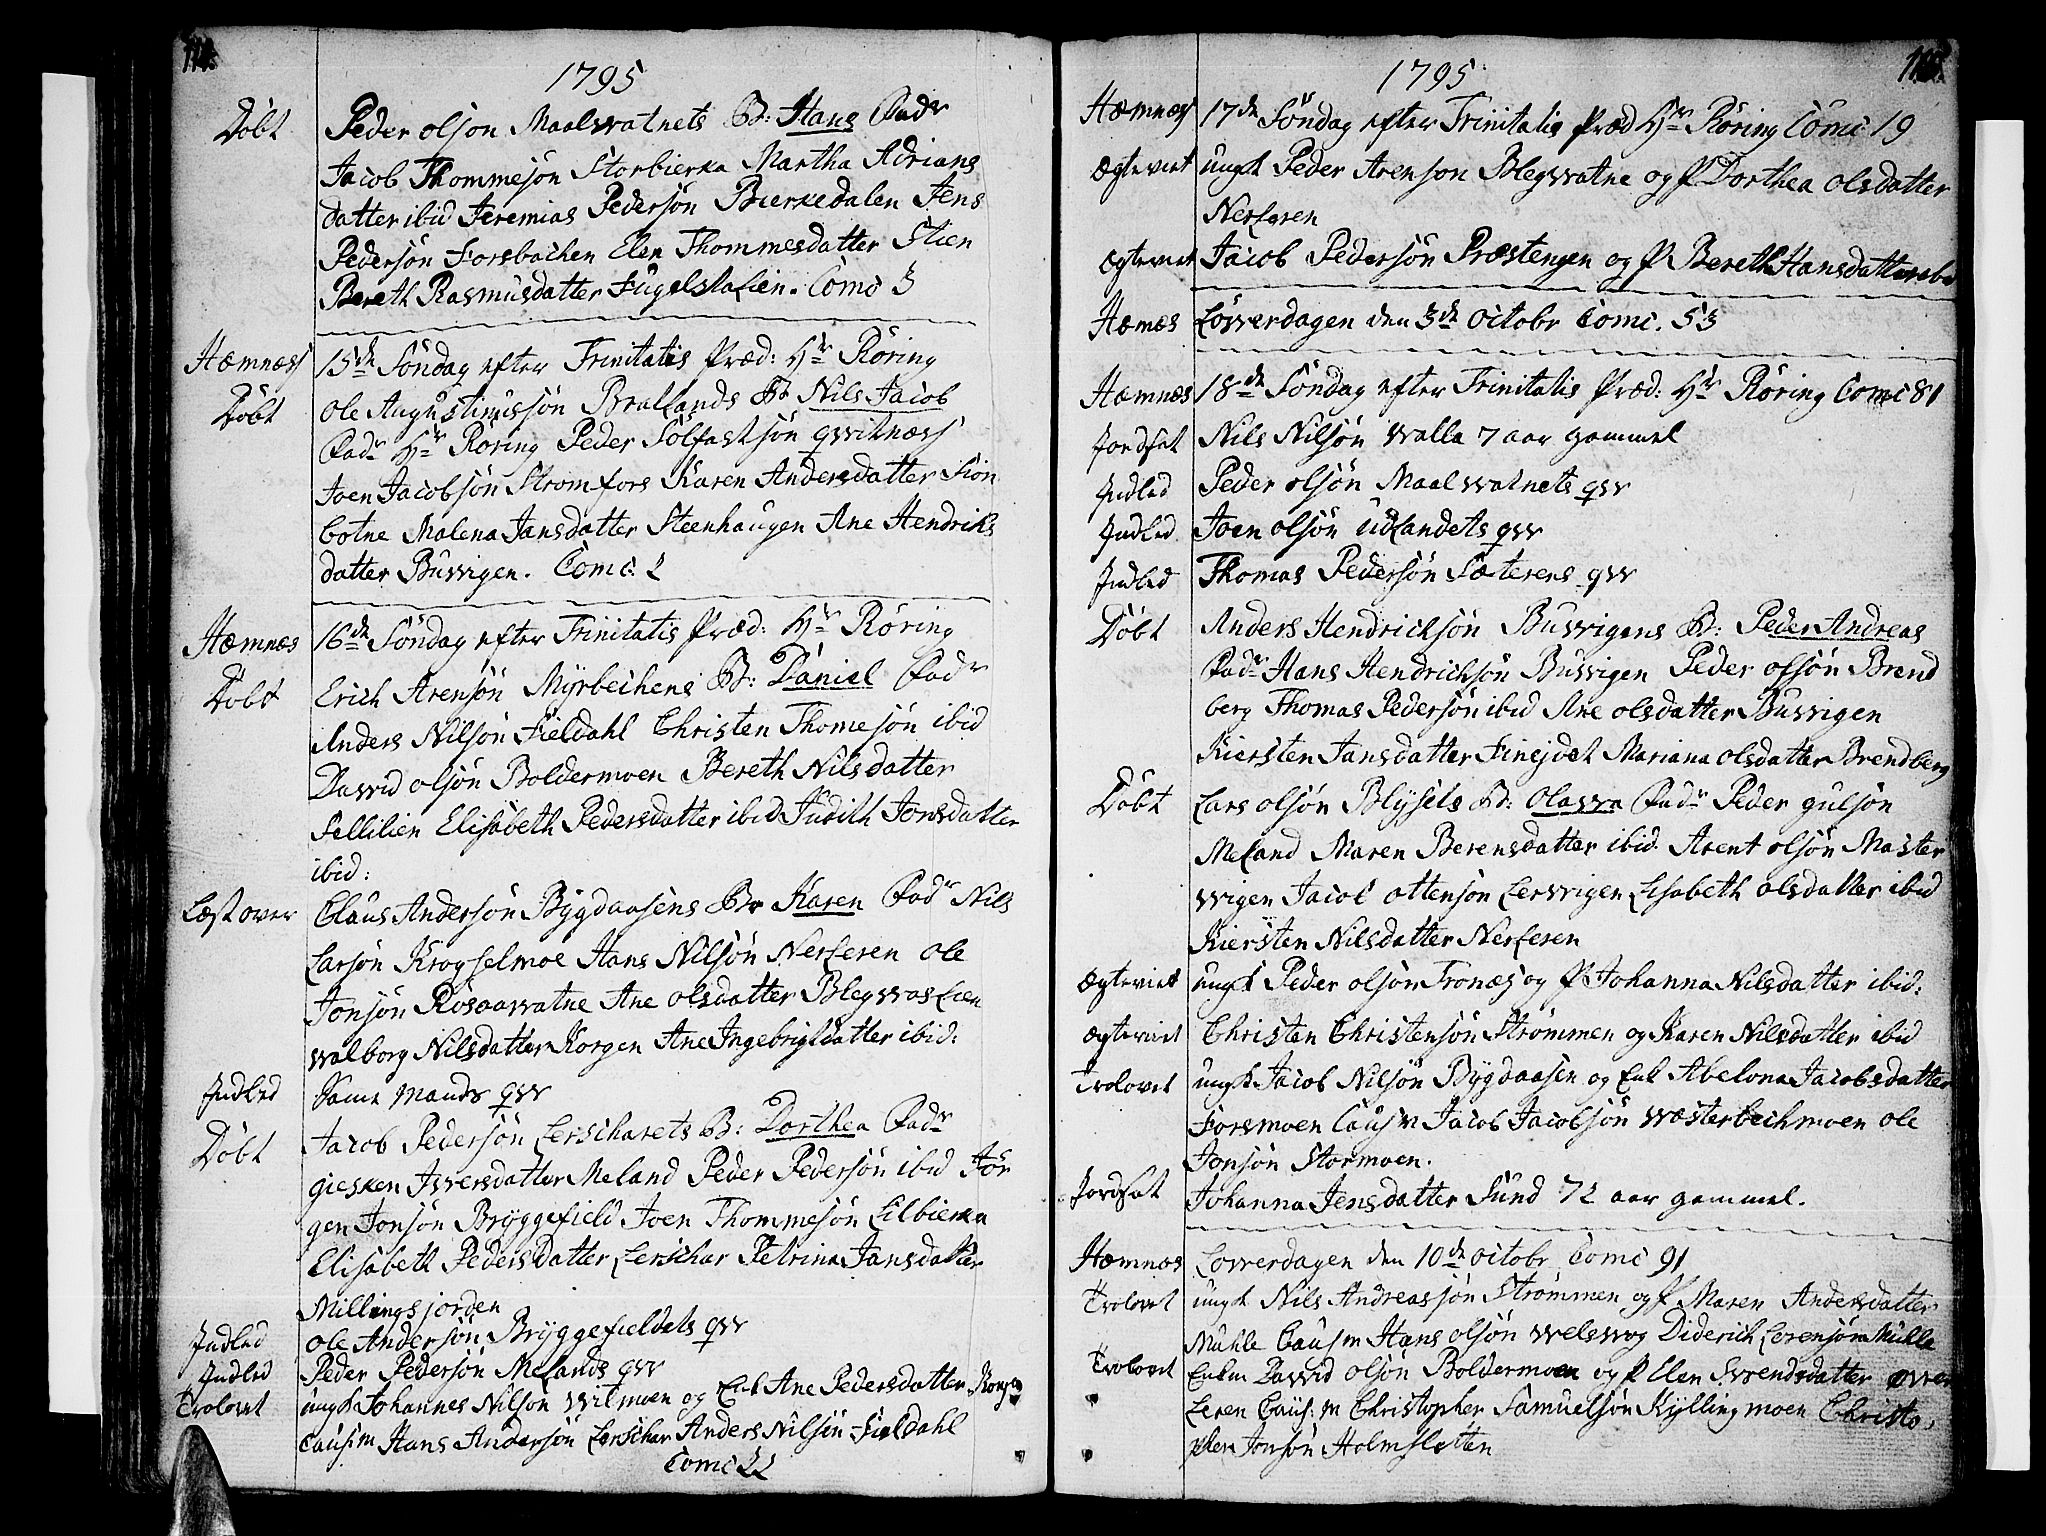 114.
1795
Döbt Peder olsön Maalwatnets B: Hans Fadr
Jacob Thommesön Storbierka Martha Adrians
datter ibid Jeremias Pedersön Bierkedalen Jens
Pedersön Forsbachen Elen Thommesdatter Stien
Bereth Rasmusdatter Fugelslalien. Comc 3
Hæmness 15de Söndag efter Trinitatis Præd: Hr Röring
Döbt Ole Augustinussön Brallands B: Nils Jacob
Fadr Hr Röring Peder Solfastsön qwitnæss
Joen Jacobsön Stromfors Karen Andersdatter Sion
botne Malena Jansdatter Steenhaugen Ane Hendriks
datter Buwigen. Comc: 2
Hæmnæs 16de Söndag efter Trinitatis Præd: Hr Röring
Döbt Erich Arensön Myrbechens B: Daniel Fadr
Anders Nilsön Fieldahl Christen Thomesön ibid
Dawid olsön Boldermoen Bereth Nilsdatter
Sellilien Elisabeth Pedersdatter ibid Judith Jonsdatter
ibid:
Læst over Claus Andersön Bygdaasens B: Karen Fadr Nils
Larsön Krogselmoe Hans Nilsön Nerleren Ole
Jonsön Rösaawatne Ane olsdatter Blegwaslien
walborg Nilsdatter Korgen Ane Ingebrigtdatter ibid:
Indled Same Mands qw
Döbt Jacob Pedersön Lerscharets B: Dorthea Fadr
giesken Iwersdatter Meland Peder Pedersön ibid Jör
gen Jonsön Bryggefield Joen Thommesön Lilbierka
Elisabeth Pedersdatter Lerschar Petrina Jansdatter
Millingsjorden
Indled Ole Andersön Bryggefieldets qw
Indled Peder Pedersön Melands qw
Trolovet ungk Johannes Nilsön witmoen og Enk Ane Pedersdatter Korgen
Caus:m Hans Andersön Lerschar Anders Nilsön Fieldahl
Comc 22
115.
1795
Hæmnæs 17de Söndag efter Trinitatis Præd Hr Röring Comc 19
Ægteviet ungk Peder Arensön Blegwatne og P Dorthea olsdatter
Nerleren
Ægteviet Jacob Pedersön Præstengen og P Bereth Hansdatter ibd
Hæmæs Löwerdagen den 3de octobr Comc. 53
Hæmnæs 18de Söndag efter Trinitatis Præd: Hr Röring Comc 81
Jordsat Nils Nilsön walla 7 aar gammel
Indled Peder olsön Maalwatnets qw
Indled Joen olsön udlandets qw
Indled Thomas Pedersön Sæterens qw
Döbt Anders Hendricksön Buwigens B: Peder Andreas
Fadr Hans Hendricksön Buwigen Peder olsön Brend
berg Thomas Pedersön ibid Ane olsdatter Buwigen
Kiersten Jansdatter Finejdet Mariana olsdatter Brendberg
Döbt Lars olsön Blysels B: Olawa Fadr Peder gulsön
Meland Maren Berensdatter ibid Arent olsön Master
wigen Jacob ottensön Lerwigen Lisabeth olsdatter ibid
Kiersten Nilsdatter Nerleren
Ægteviet ungk Peder olsön Tronæs og P Johanna Nilsdatter ibid:
Ægteviet Christen Christensön Strömmen og Karen Nilsdatter ibid
Trolovet ungk Jacob Nilsön Bygdaasen og Enk Abelona Jacobsdatter
Forsmoen Caus:m Jacob Jacobsön wæsterbechmoen Ole
Jonsön Stormoen.
Jordsat Johanna Jensdatter Sund 72 aar gammel.
Hæmnæs Lowerdagen den 10de octobr Comc 91
Trolovet ungk Nils Andreassön Strömmen og P Maren Andersdatter
Mühle Caus m Hans olsön welswog Diderich Lorensön Mülle
Trolovet Enkm Dawid olsön Boldermoen og P Elen Swendsdatter over
Leren Caus: m Christopher Samuelsön Kyllingmoen Christo,
pher Jonsön Holmsletten